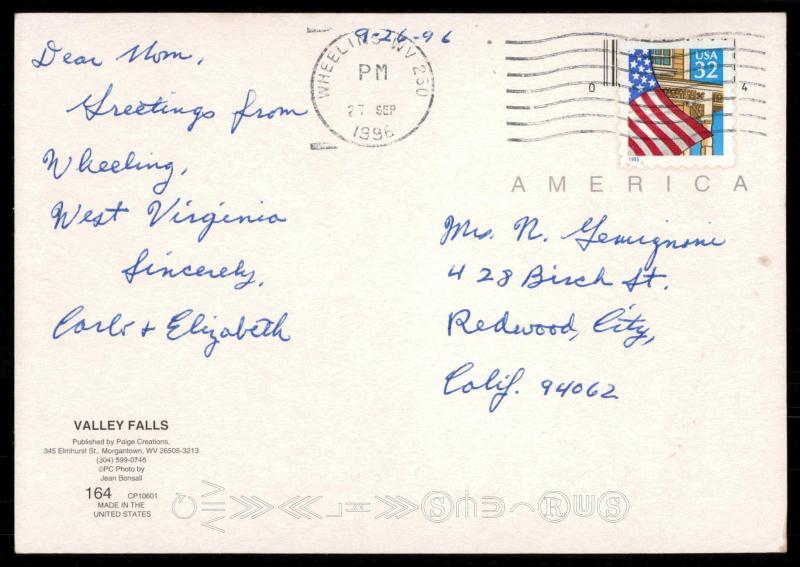 9-26-96
Dear Mom,
Greetings from
Wheeling,
West Virginia
Sincerely,
Carlo & Elizabeth
WHEELING WV 260
PM
27 SEP
1996
USA
32
0
4
1995
AMERICA
Mrs. N. Gemignani
428 Birch St.
Redwood, City,
Calif. 94062
VALLEY FALLS
Published by Paige Creations,
345 Elmhurst St., Morgantown, WV 26505-3213
(304) 599-0745
©PC Photo by
Jean Bonsall
164 CP10601
MADE IN THE
UNITED STATES